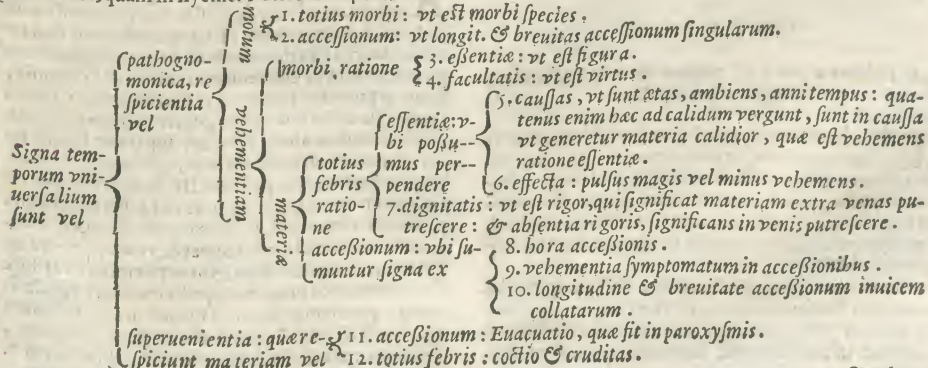 motum
1. totius morbi: vt est morbi species.
2. accessionum: vt longit. & breuitas accessionum singularum.
pathogno-
monica, re
spicientia
vel
vehementiam
morbi, ratione
3. essentiæ: vt est figura.
4. facultatis: vt est virtus.
Signa tem-
porum vni-
uersalium
sunt vel
materiæ
totius
febris
ratio-
ne
essentiæ: v-
bi possu-
mus per-
pendere
5. caussas, vt sunt ætas, ambiens, anni tempus: qua-
tenus enim hæc ad calidum vergunt, sunt in caussa
vt generetur materia calidior, quæ est vehemens
ratione essentiæ.
6. effecta: pulsus magis vel minus vehemens.
7. dignitatis: vt est rigor, qui significat materiam extra venas pu-
trescere: & absentia rigoris, significans in venis putrescere.
accessionum: vbi su-
muntur signa ex
8. hora accessionis.
9. vehementia symptomatum in accessionibus.
10. longitudine & breuitate accessionum inuicem
collatarum.
superuenientia: quæ re-
spiciunt materiam vel
11. accessionum: Euacuatio, quæ fit in paroxysmis.
12. totius febris: coctio & cruditas.